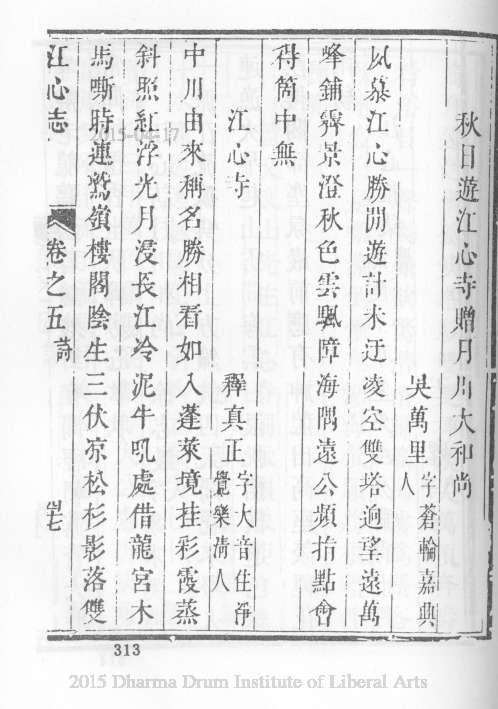 秋日遊江心寺贈月川大和尚
吳萬里字蒼輪嘉興人
夙慕江心勝閒遊計未迂凌空雙塔迥望遠萬
峰鋪霽景澄秋色雲颿障海隅遠公頻指點會
得箇中無
江心寺
釋真正字大音住淨覺樂清人
中川由來稱名勝相看如入蓬萊境挂彩霞蒸
斜照紅浮光月浸長江冷泥牛吼處借龍宮木
馬嘶時連鷲嶺樓閣陰生三伏凉松杉影落雙
江心志
卷之五 詩
2015-04-17
313
2015 Dharma Drum Institute of Liberal Arts